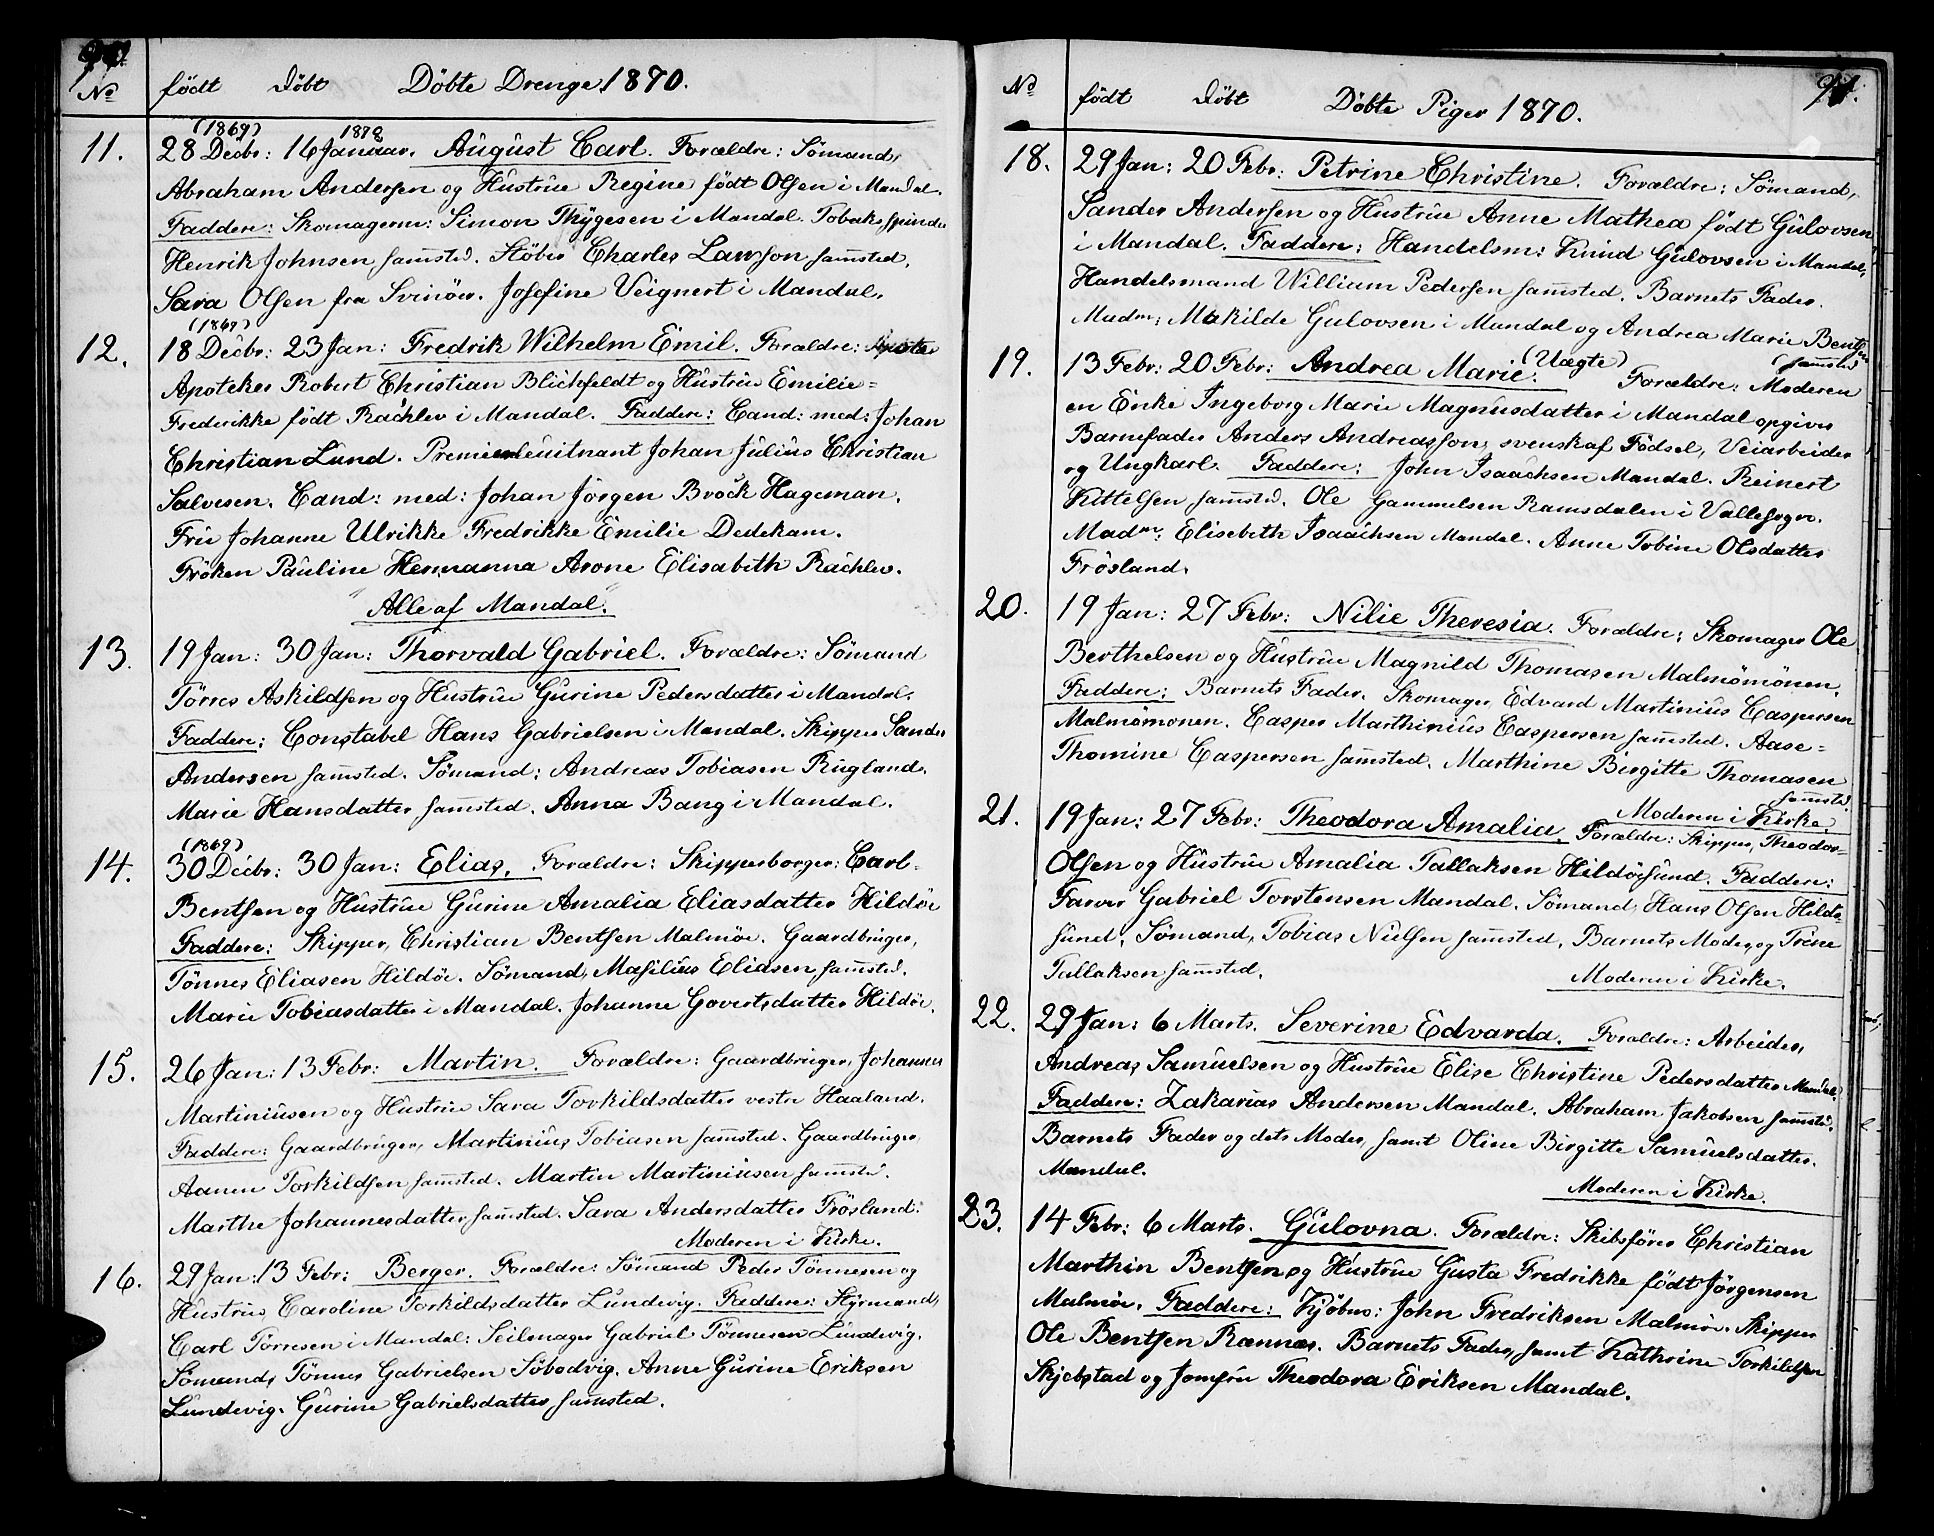 No født Døbt Döbte Drenge 1870.
11. (1869) 1870
28 Decbr: 16 Januar. August Carl. Forældre: Sömand,
Abraham Andersen og Hustrue Regine født Olsen i Mandal.
Faddere: Skomagerm: Simon Thygesen i Mandal. Tobakspinder
Henrik Johnsen samsted. Støber Charles Lawson samsted.
Sara Olsen fra Svinöer. Josefine Veignert i Mandal.
(1869)
12. 18 Decbr: 23 Jan: Fredrik Wilhelm Emil. Forældre:
Apoteker Robert Christian Blichfeldt og Hustrue Emilie=
Frederikke født Rachlev i Mandal. Faddere: Cand: med: Johan
Christian Lund. Premierleuitnant Johan Julius Christian
Salvesen. Cand: med: Johan Jörgen Brock Hageman.
Frue Johanne Ulrikke Fredrikke Emilie Dedekam.
Fröken Pauline Hermanna Arone Elisabeth Rachlev.
Alle af Mandal.
13. 19 Jan: 30 Jan: Thorvald Gabriel. Forældre: Sömand
Törres Askildsen og Hustrue Gurine Pedersdatter i Mandal.
Faddere: Constabel Hans Gabrielsen i Mandal. Skipper Sander
Andersen samsted. Sömand: Andreas Tobiasen Rugland.
Marie Hansdatter samsted. Anna Bang i Mandal.
(1869)
14. 30 Decbr: 30 Jan: Elias. Forældre: Skipperborger: Carl-
Bentsen og Hustrue Gurine Amalia Eliasdatter Hildöe
Faddere: Skipper, Christian Bentsen Malmöe. Gaardbruger,
Tönnes Eliasen Hildöe. Sömand, Masilius Eliasen samsted.
Marie Tobiasdatter i Mandal. Johanne Govertsdatter Hildöe.
15. 26 Jan: 13 Febr: Martin. Forældre: Gaardbruger, Johannes
Martiniusen og Hustrue Sara Torkildsdatter vestre Haaland.
Faddere: Gaardbruger, Martinius Tobiasen samsted. Gaardbruger,
Aanen Torkildsen samsted. Martin Martiniusen samsted.
Marthe Johannesdatter samsted. Sara Andersdatter Frösland.
Moderen i Kirke.
16. 29 Jan: 13 Febr: Berger. Forældre: Sömand Peder Tönnesen og
Hustrue, Caroline Torkildsdatter Lundevig. Faddere: Styrmand,
Carl Törresen i Mandal: Seilmager Gabriel Tönnesen Lundevig.
Sömand, Tönnes Gabrielsen Söbodvig. Anne Gurine Eriksen
Lundevig. Gurine Gabrielsdatter samsted.
No født Døbt Döbte Piger 1870. 91.
18. 29 Jan: 20 Febr: Petrine Christine. Forældre: Sömand,
Sander Andersen og Hustrue Anne Mathea født Gulovsen
i Mandal. Faddere: Handelsm: Knud Gulovsen i Mandal,
Handelsmand William Pedersen samsted. Barnets Fader.
Madm: Makilde Gulovsen i Mandal og Andrea Marie Bentsen
samsted
19. 13 Febr: 20 Febr: Andrea Marie. (Uægte) Forældre: Moderen
en Enke Ingeborg Marie Magnusdatter i Mandal opgiver
Barnefader Anders Andreasson, svensk af Födsel, Veiarbeider
og Ungkarl. Faddere: John Isaachsen Mandal. Reinert
Kittelsen samsted. Ole Gammelsen Ramsdalen i Vallesogn.
Madm: Elisebeth Isaachsen Mandal. Anne Tobine Olsdatter
Frösland.
20. 19 Jan: 27 Febr: Nilie Theresia. Forældre: Skomager Ole
Berthelsen og Hustrue Magnild Thomasen Malmömönen.
Faddere: Barnets Fader. Skomager, Edvard Martinius Caspersen
Malmömonen. Casper Marthinius Caspersen samsted. Aase=
Thomine Caspersen samsted. Marthine Birgitte Thomasen
samsted.
Moderen i Kirke.
21. 19 Jan: 27 Febr: Theodora Amalia. Forældre: Skipper, Theodor-
Olsen og Hustrue Amalia Tallaksen Hildösund. Faddere:
Farver Gabriel Torstensen Mandal. Sömand, Hans Olsen Hildö-
sund. Sömand, Tobias Nielsen samsted. Barnets Moder, og Trine
Tallaksen samsted.
Moderen i Kirke.
22. 29 Jan: 6 Marts. Severine Edvarda. Forældre: Arbeider,
Andreas Samuelsen og Hustrue Elise Christine Pedersdatter Mandal.
Faddere: Zakarias Andersen Mandal. Abraham Jakobsen samsted.
Barnets Fader og dets Moder, samt Oline Birgitte Samuelsdatter.
Mandal.
Moderen i Kirke.
23. 14 Febr: 6 Marts. Gulovna. Forældre: Skibsförer Christian
Marthin Bentsen og Hustrue Gusta Fredrikke født Jörgensen
Malmöe. Faddere: Kjöbm: John Fredriksen Malmöe. Skipper
Ole Bentsen Rannæs. Barnets Fader, samt Kathrine Torkildsen
Skjebstad og Jomfru Theodora Eriksen Mandal.